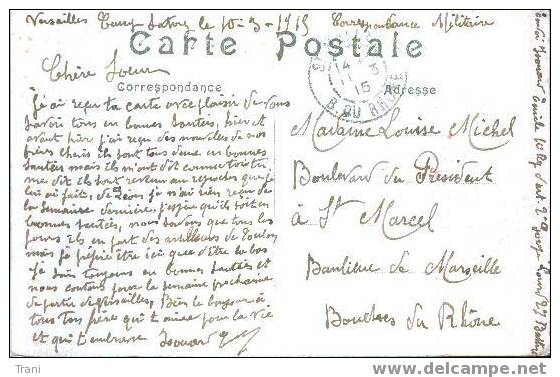 Versailles Camp Satory le 10-3-1915 Correspondance Militaire
Carte Postale
Chère Soeur
Correspondance
Adresse
J'ai reçu ta carte avec plaisir de vous
savoir tous en bonnes santés, hier et
avant hier j'ai reçu des nouvelles de nos
frères chéris ils sont tous deux en bonnes
santés mais ils m'ont dit
me dit ils sont revenu au que je
lui ai fait, de Léon je n'ai rien reçu de
la semaine dernière, j'espère qu'ils soit en
bonnes santés, nous savons que tous les
jours ils en part des artilleurs de Toulon
mais je préfère être ici que d'être là bas
Je suis toujours en bonnes santés et
nous contons pour la semaine prochaine
de partir de Versailles, Bien le bonjour à
tous ton frère qui t'aime pour la vie
et qui t'embrasse Isouard
Madame Louise Michel
Boulevard du Président
à St Marcel
Banlieue de Marseille
Bouches du Rhône
14 3
15
B. DU RHONE
Isouard Emile
Trani
delcampe.net